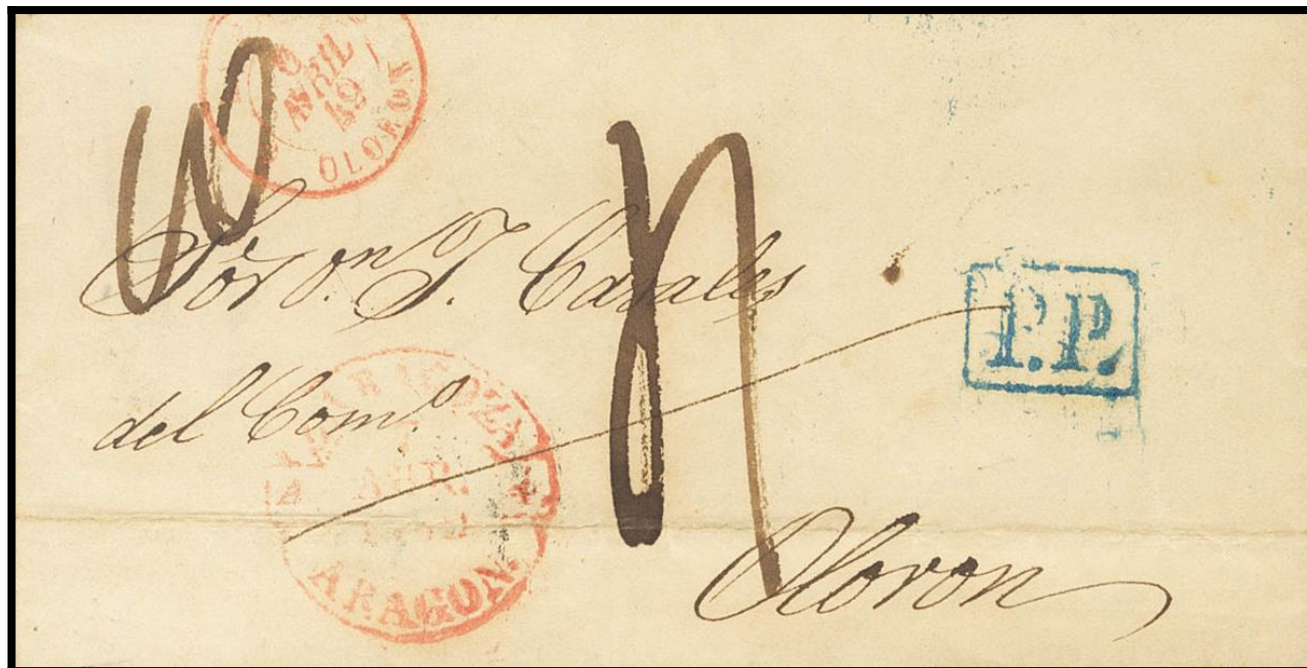 AVRIL
49
OLORON
Sor Dn. J. Casales
P.P.
del Como
ZARAGOZA
ABR.
ARAGON.
Oloron